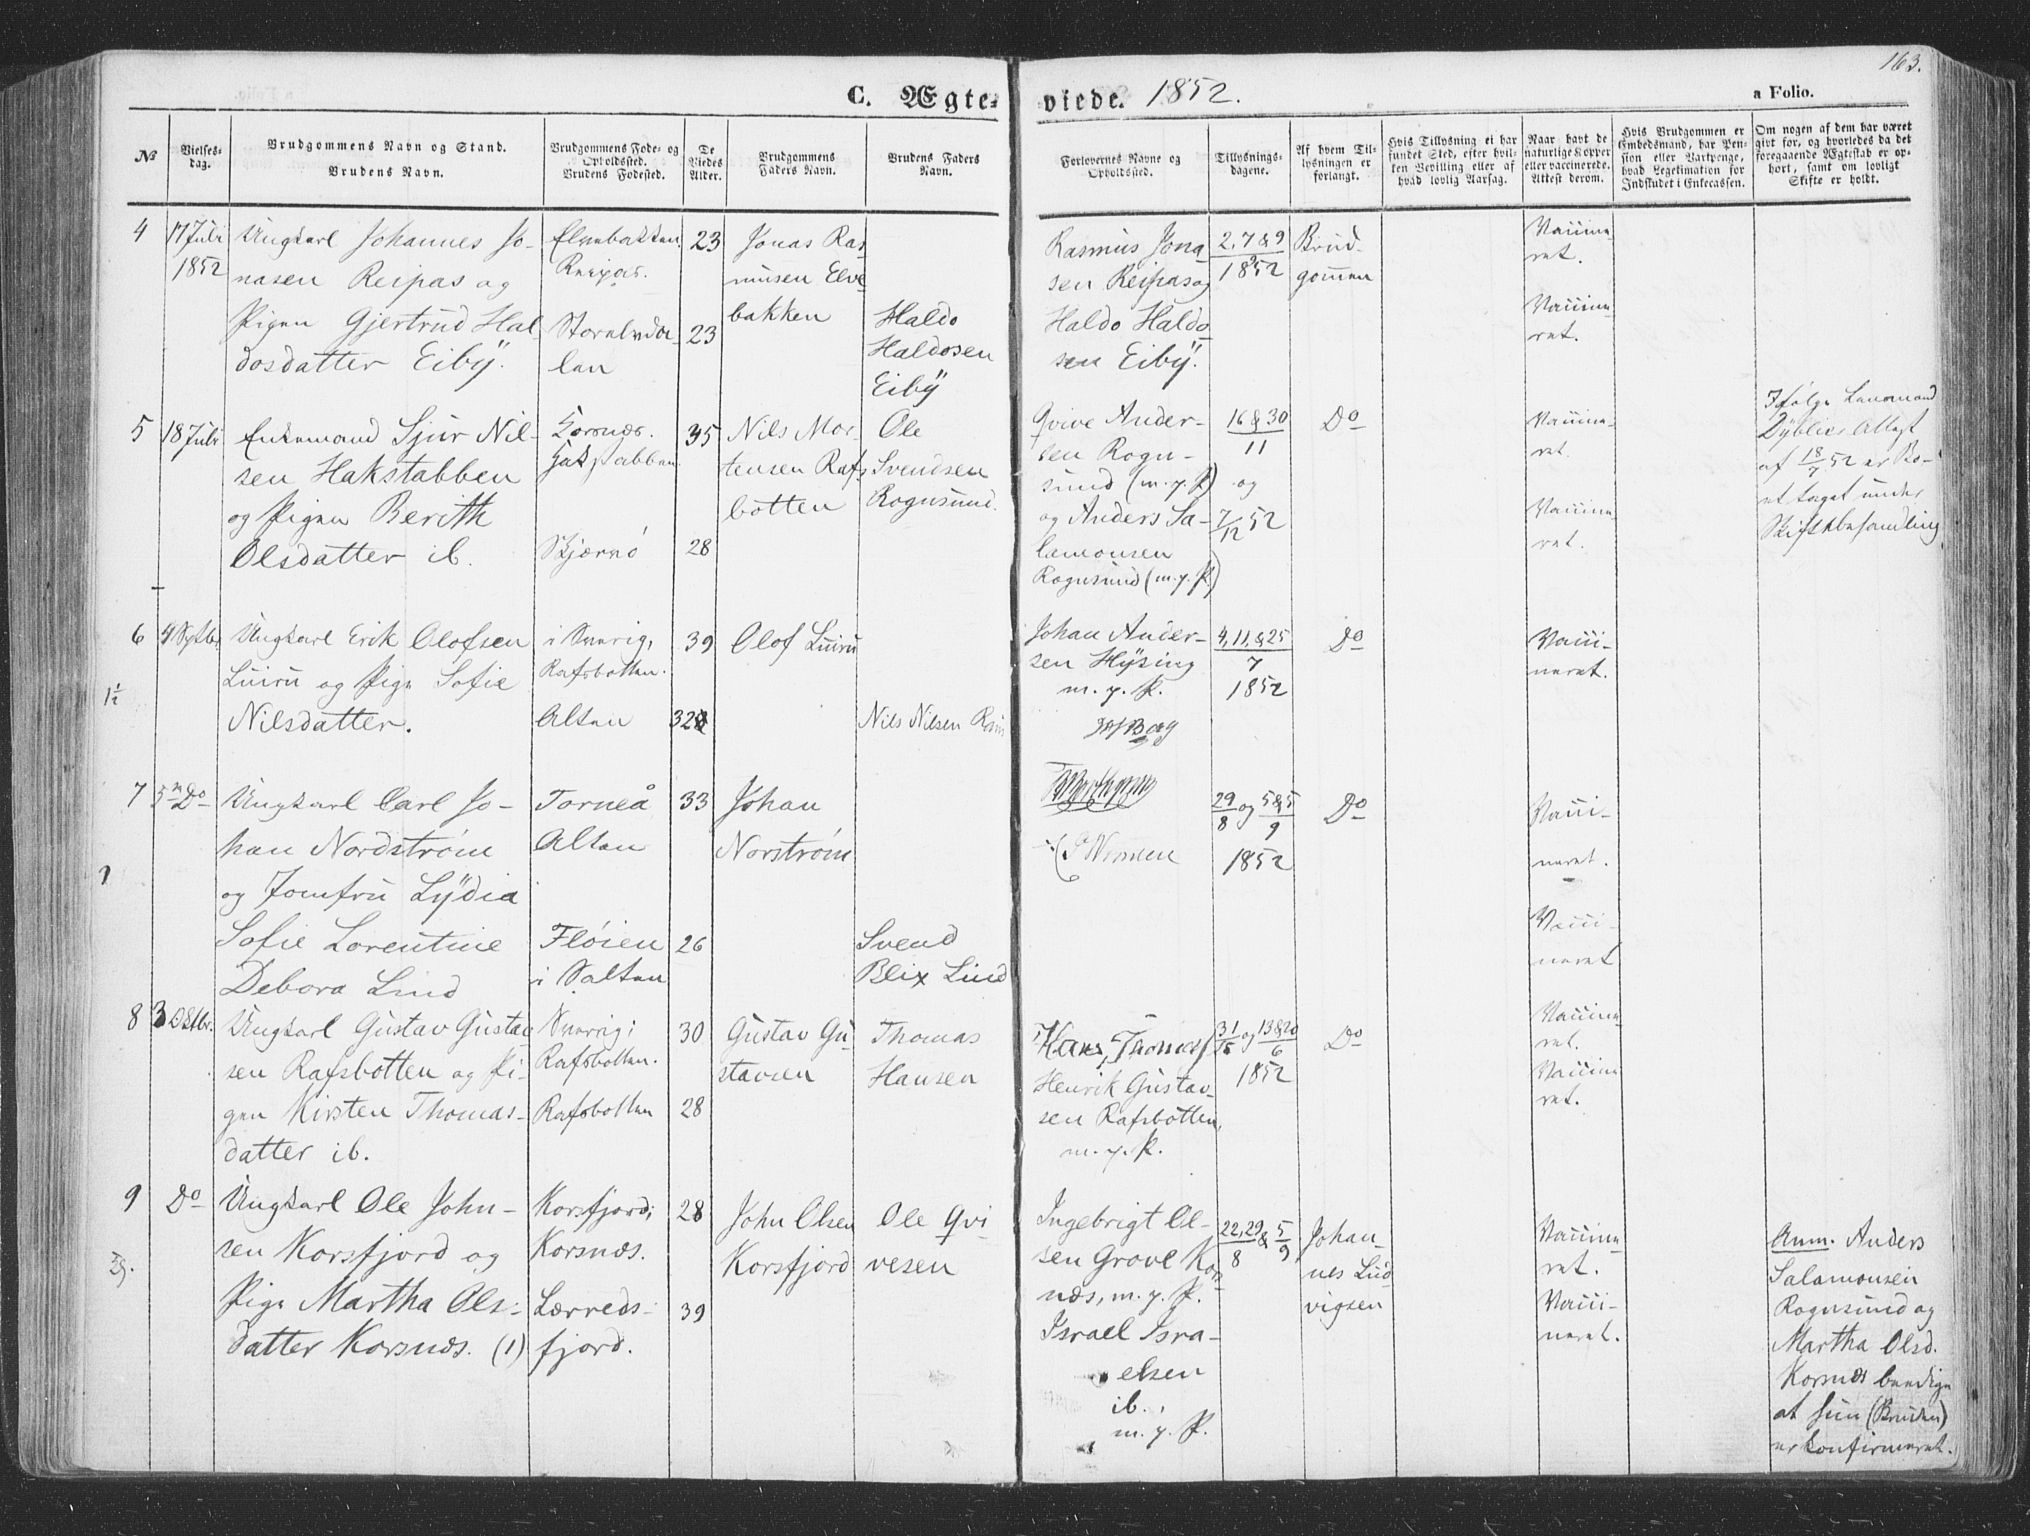 163.
C. Ægte-
viede. 1852.
a Folio.
№
Vielses-
dag.
Brudgommens Navn og Stand.
Brudens Navn.
Brudgommens Føde- og
Opholdssted.
Brudens Fødested.
De
Viedes
Alder.
Brudgommens
Faders Navn.
Brudens Faders
Navn.
Forlovernes Navne og
Opholdssted.
Tillysnings-
dagene.
Af hvem Til-
lysningen er
forlangt.
Hvis Tillysning ei har
fundet Sted, efter hvil-
ken Bevilling eller af
hvad lovlig Aarsag.
Naar havt de
naturlige Kopper
eller vaccinerede.
Attest derom.
Hvis Brudgommen er
Embedsmand, har Pen-
sion eller Vartpenge,
hvad Legitimation for
Indskudet i Enkecassen.
Om nogen af dem har været
givt for, og hvorledes da det
foregaaende Ægteskab er op-
hørt, samt om lovligt
Skifte er holdt.
4
17 Juli
1852
Ungkarl Johannes Jo-
nasen Reipas og
Pigen Gjertrud Hal-
dosdatter Eiby.
Elvebakken.
Reipas.
23
23
Jonas Ras
musen Elve
bakken
Haldo
Haldosen
Eiby
Rasmus Jona-
sen Reipas og
Haldo Haldo
sen Eiby.
2, 7 & 9
1852
Brud-
gommen
Vaccine-
ret.
Vaccine-
ret.
5
18 Juli
Enkemand Sjur Nil-
sen Hakstabben
og Pigen Berith
Olsdatter ib.
Hakstabben
Stjærnö
35
28
Nils Mor-
tensen Rafs
botten
Ole
Svendsen
Rognsund.
Qvive Ander-
sen Rogn-
sund (m. p. P.)
og Anders Sa-
lamonsen
Rognsund (m. p. P.)
16 & 30
11
og
7/12 52
Do
Vaccine-
ret.
Vaccine-
ret.
Ifølge Lensmand
Attest
af 18/7 52 er Bo-
et taget under
Skiftebehandling
6
4 Septbr.
Ungkarl Erik Olofsen
Luiru og Pige Sofie
Nilsdatter.
i Sverig,
Rafsbotten.
Alten
39
32
Olof Luiru
Nils Nilsen
Johan Ander-
sen Hysing
m. p. P.
4, 11, & 25
7
1852
Do
Vacci-
neret.
7
5 Do
Ungkarl Carl Jo-
han Nordström
og Jomfru Lydia
Sofie Lorentine
Debora Lind
Torneå
Alten
Flöien
i Salten
33
26
Johan
Norström
Svend
Blix Lind
29/8 og 5 & 5/9
1852
Do
Vacci-
neret.
Vacci-
neret
8
3 Oktbr.
Ungkarl Gustav Gustav
sen Rafsbotten og Pi-
gen Kirsten Thomas-
datter ib.
Sverrig;
Rafsbotten.
Rafsbotten
30
28
Gustav Gu-
stavsen
Thomas
Hansen
Hans Thomas
Henrik Gustav-
sen Rafsbotten,
m. p. P.
13 & 20
6
1852
Do
Vaccine-
ret.
Vaccine
ret.
9
Do
Ungkarl Ole John-
sen Korsfjord og
Pige Martha Ols-
datter Korsnæs. (1)
Korsfjord;
Korsnæs.
Lærreds-
fjord.
28
39
John Olsen
Korsfjord
Ole Qvi
vesen
Ingebrigt Ol-
sen Grove Kors
næs, m. p. P.
Israel Isra-
elsen
ib.,
m. p. P.
22, 29/8 & 5/9
Johan-
nes Lud
vigsen
Vaccine-
ret.
Vacci-
neret.
Anm. Anders
Salamonsen
Rognsund og
Martha Olsd.
Korsnæs
at hun (Bruden)
er konfirmeret.